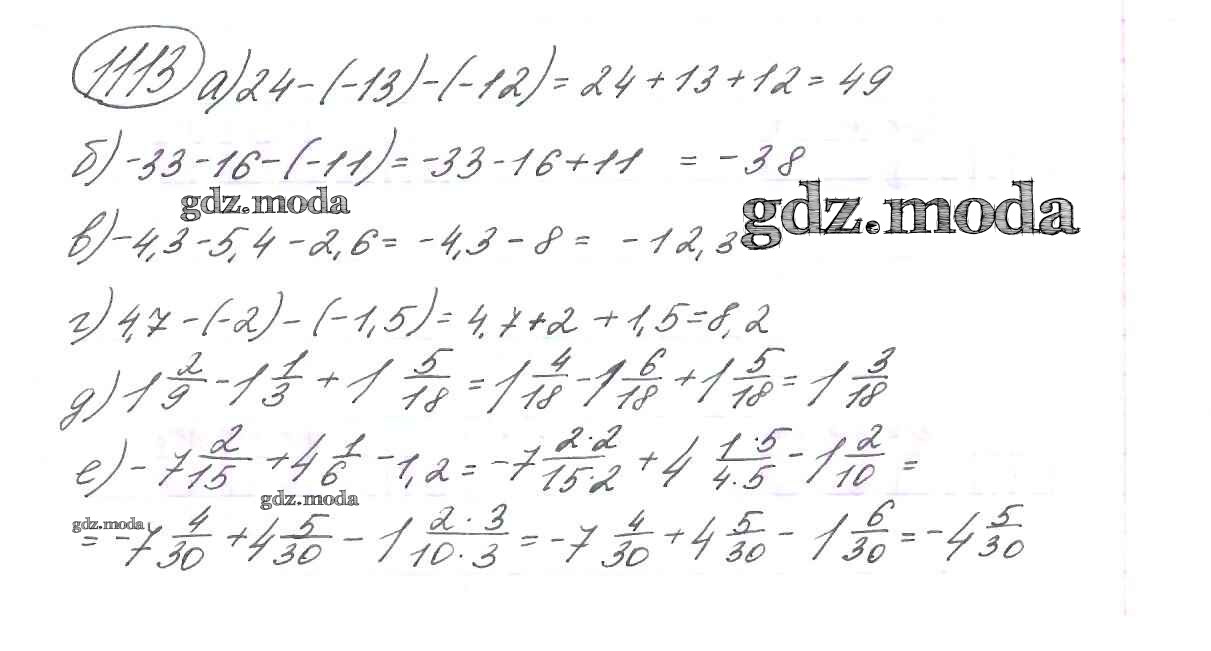 1113 а) 24 - (-13) - (-12) = 24 + 13 + 12 = 49
б) -33 - 16 - (-11) = -33 - 16 + 11 = -38
gdz.moda
gdz.moda
в) -4,3 - 5,4 - 2,6 = -4,3 - 8 = -12,3
г) 4,7 - (-2) - (-1,5) = 4,7 + 2 + 1,5 = 8,2
д) 1 2/9 - 1 1/3 + 1 5/18 = 1 4/18 - 1 6/18 + 1 5/18 = 1 3/18
е) -7 2/15 + 4 1/6 - 1,2 = -7 2·2/15·2 + 4 1·5/4·5 - 1 2/10 =
gdz.moda
gdz.moda
= -7 4/30 + 4 5/30 - 1 2·3/10·3 = -7 4/30 + 4 5/30 - 1 6/30 = -4 5/30